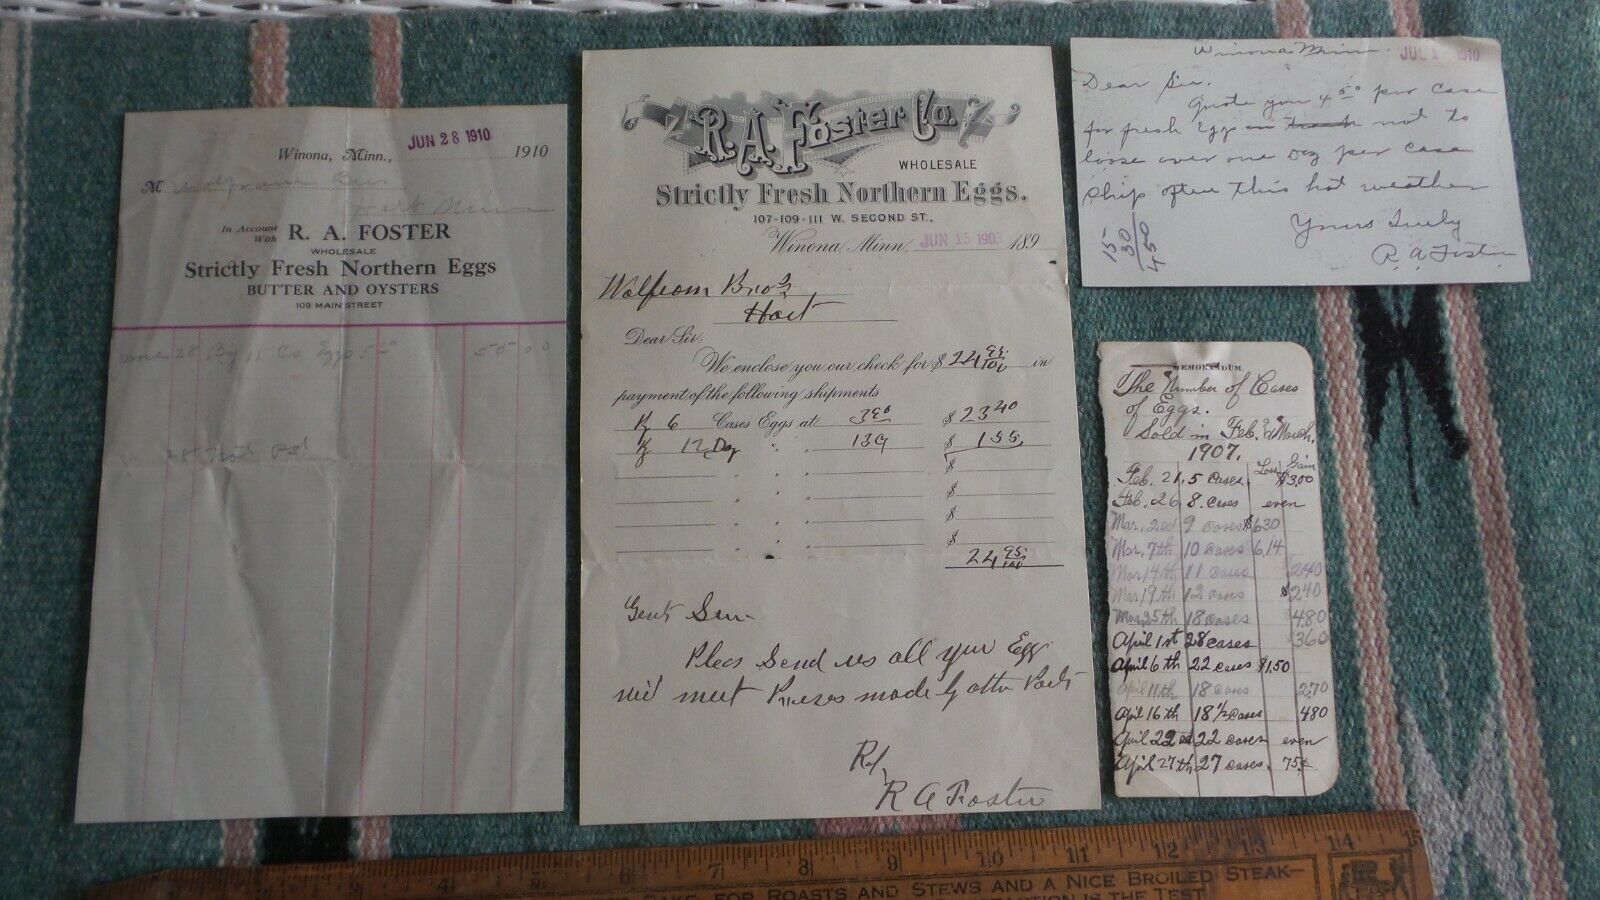 JUN 28 1910
Winona, Minn., 1910
M Wolfram Bros
Hart Minn
In Account With R. A. FOSTER
WHOLESALE
Strictly Fresh Northern Eggs
BUTTER AND OYSTERS
109 MAIN STREET
June 28 By 11 Cs Eggs 5 00 55 00
Pd
R. A. Foster Co.
WHOLESALE
Strictly Fresh Northern Eggs.
107-109-111 W. SECOND ST.,
Winona, Minn, JUN 15 1903 189
Wolfram Bros
Hart
Dear Sir:
We enclose you our check for $ 24 95/100 in
payment of the following shipments
6 Cases Eggs at 390 $ 23 40
12 Dog 13 $ 1 55
$
$
$
$
24 95/100
Gent Sirs
Pleas Send us all your Egg
will meet Prises made by other Parts
R. A. Foster
Winona Minn. JUL 1910
Dear Sir.
Quote you 4 50 per case
for fresh Eggs not to
loose over one Dog per case
Ship often this hot weather
Yours Truly
R. A. Foster
15
30
450
MEMORANDUM.
The Number of Cases
of Eggs.
Sold in Feb. & March.
1907.
Loss Gain
Feb. 21, 5 cases $3.00
Feb. 26, 8. cases even
Mar. 2nd 9 cases $6.30
Mar. 7th 10 cases 6.14
Mar 14th 11 cases 2.40
Mar. 19th 12 cases $2.40
Mar. 25th 18 cases 4.80
April 1st 28 cases $3.60
April 6th 22 cases $1.50
April 11th 18 cases 2.70
April 16th 18 1/2 cases 4.80
April 22nd 22 cases even
April 27th 27 cases. 75¢
4 5 6 7 8 9 10 11 12 13 14 15
FOR ROASTS AND STEWS AND A NICE BROILED STEAK-
IS THE TEST.